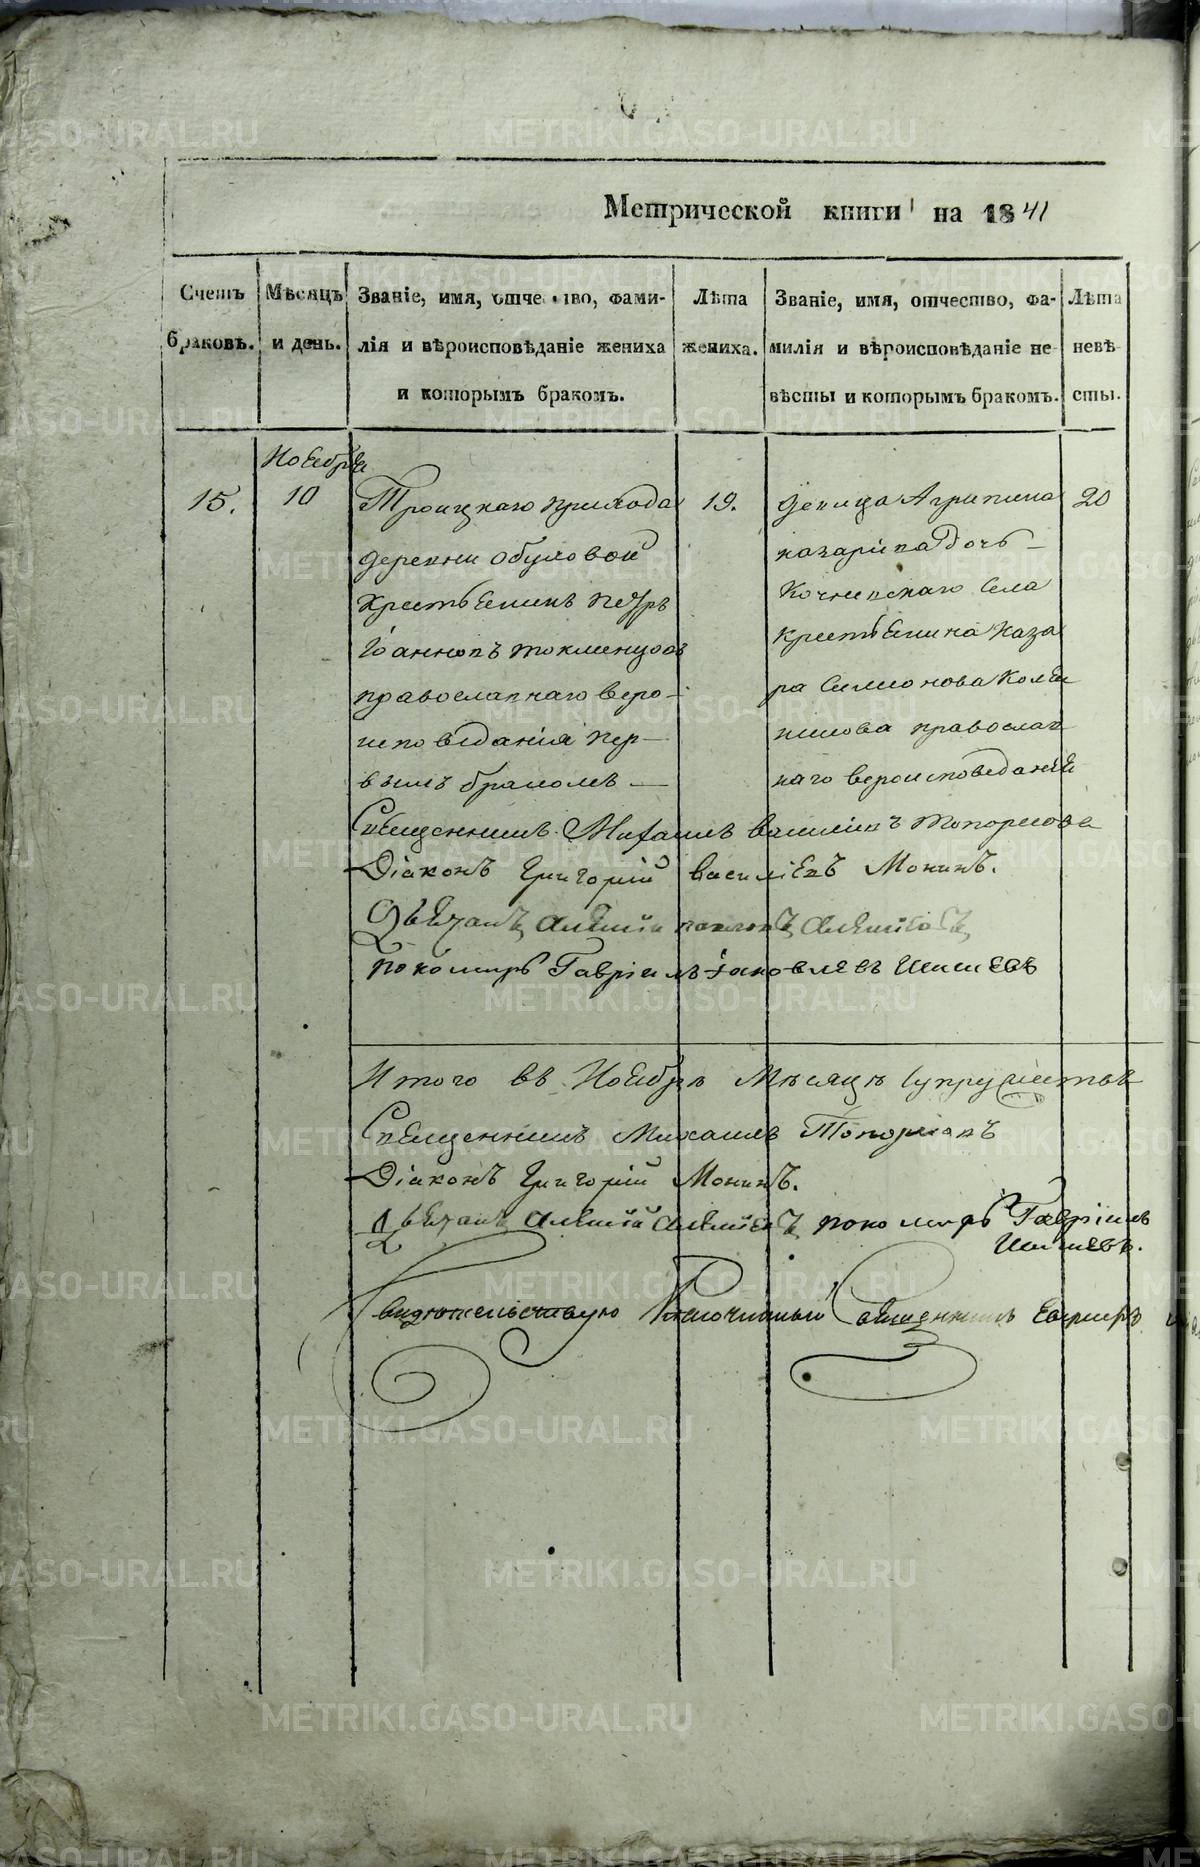 Метрической книги на 1841
Счетъ браковъ.
Мѣсяцъ и день.
Званіе, имя, отчество, фами-
лія и вѣроисповѣданіе жениха
и которымъ бракомъ.
Лѣта жениха.
Званіе, имя, отчество, фа-
милія и вѣроисповѣданіе не-
вѣсты и которымъ бракомъ.
Лѣта невѣ-
сты.
Ноября
15.
10
Троицкаго прихода
деревни Обуховой
Крестьенинъ Петръ
Іоанновъ
православнаго веро-
исповѣданія пер-
вымъ бракомъ
19.
девица Агрипина
назарова дочь
Кочневскаго Села
крестьенина Наза
ра Симионова
православ
наго вероисповеданія
20
Священникъ Михаилъ Василіевъ Топорковъ
Діаконъ Григорій Василіевъ Монинъ.
Дьячекъ Алексій Алексіевъ
Пономарь Гавріилъ Іаковлевъ Шишевъ
Итого въ Ноябрѣ Мѣсяцѣ Супружествъ
Священникъ Михаилъ Топорковъ
Діаконъ Григорій Монинъ.
Дьячекъ Алексій Алексіевъ пономарь Гавріилъ
Шишевъ.
Свидѣтельствую Благочинный Священникъ
METRIKI.GASO-URAL.RU